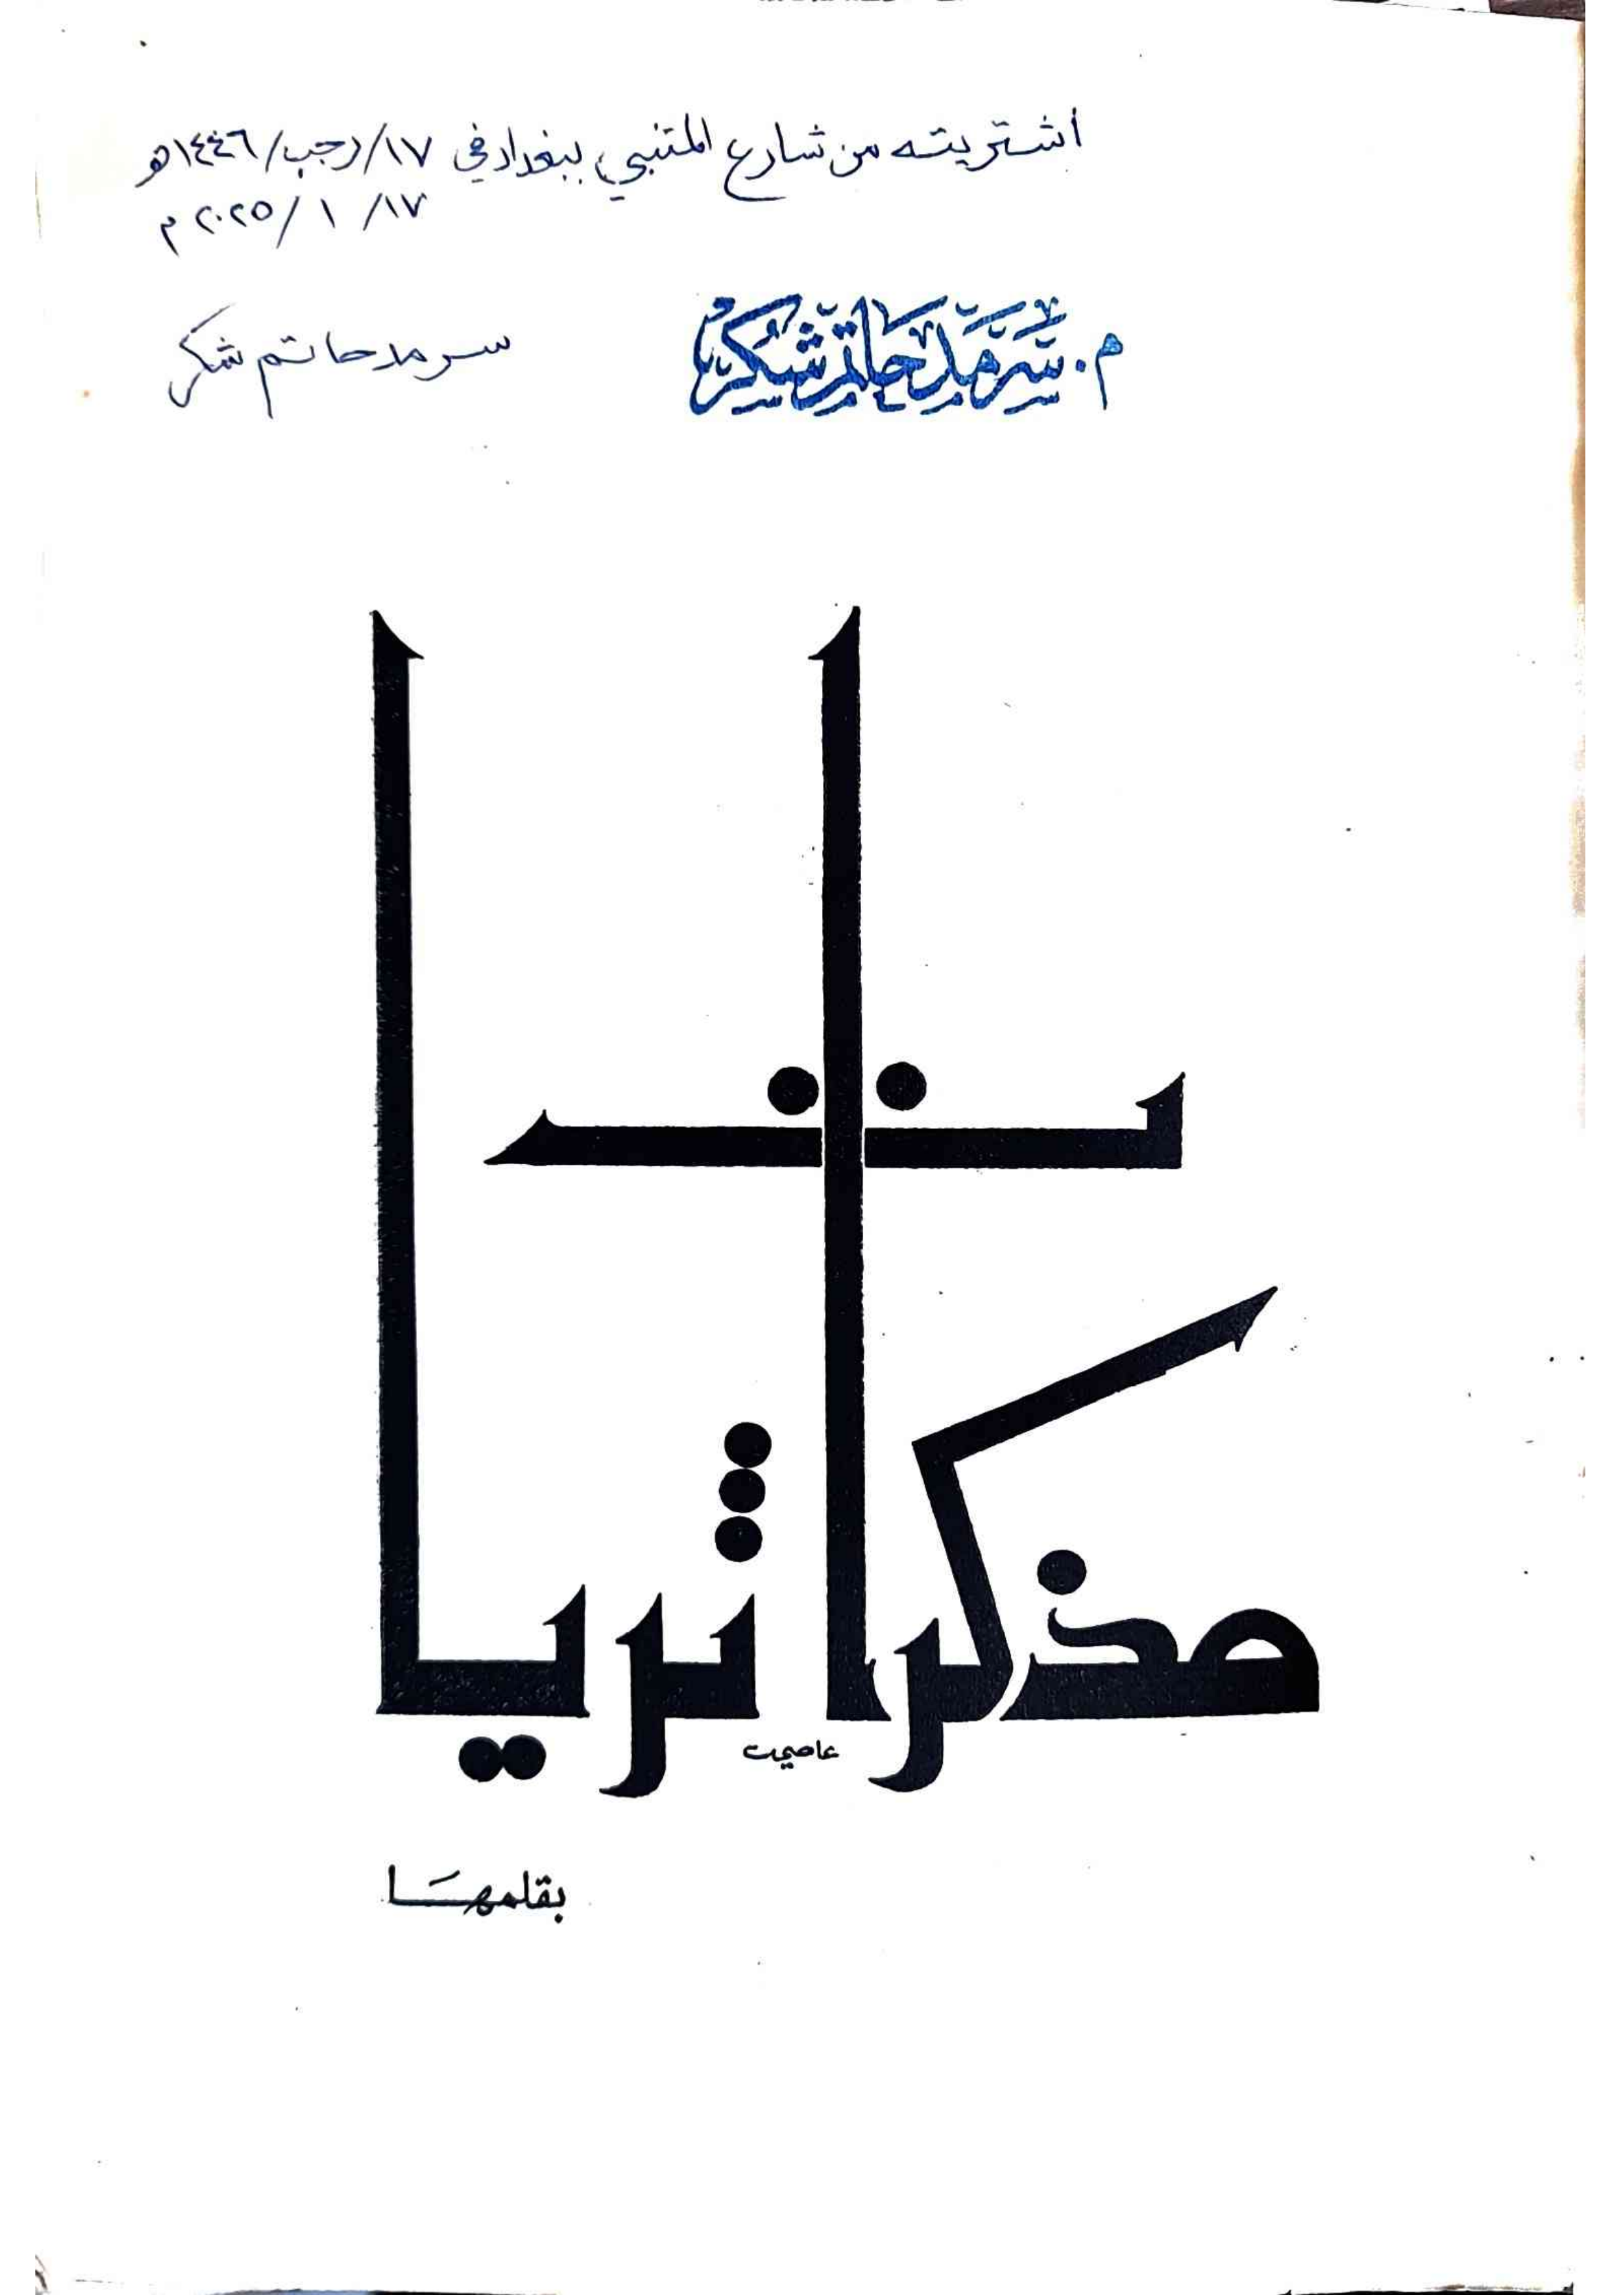 اشتريته من شارع المتنبي ببغداد في ١٧/رجب/١٤٤٦هـ
١٧/ ١ /٢٠٢٥م
م. سرمد حاتم شكر
سرمد حاتم شكر
مذكرات ثريا
بقلمها